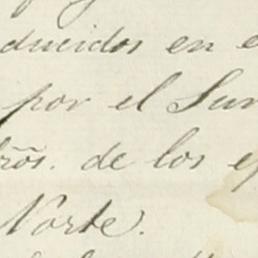 ducidos en e
por el Sur
ãos. de los es
Norte.